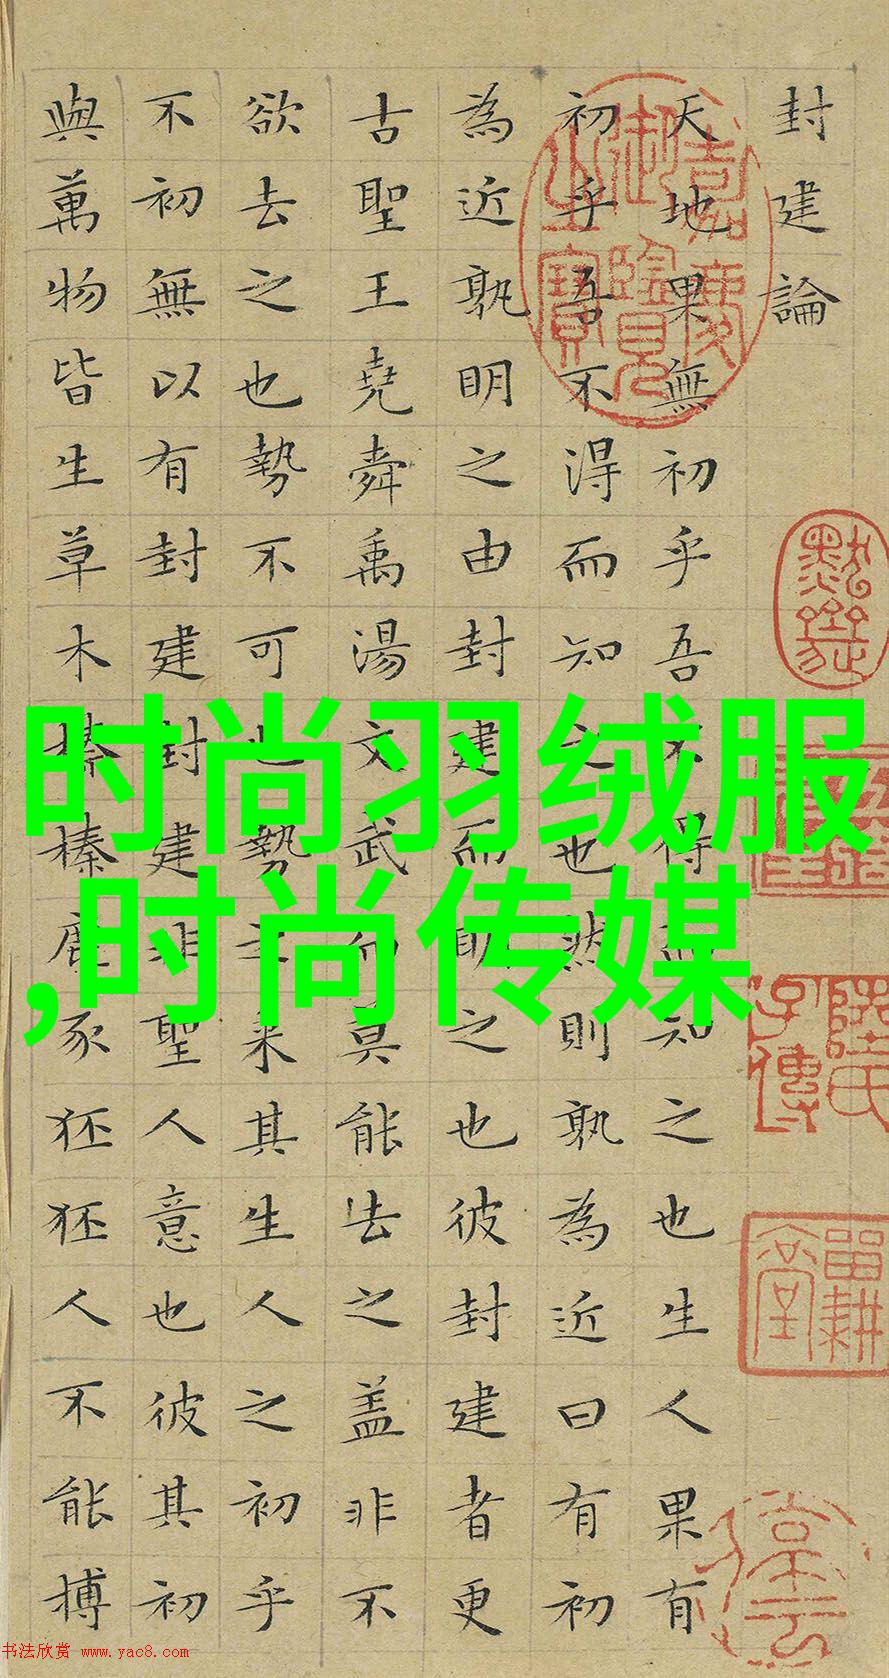 封建論
天地果無初乎吾不得而知之也生人果有
初乎吾不得而知之也然則孰為近曰有初
為近孰明之由封建而明之也彼封建者更
古聖王堯舜禹湯文武而莫能去之盖非不
欲去之也勢不可也勢之来其生人之初乎
不初無以有封建封建非聖人意也彼其初
與萬物皆生草木榛榛鹿豕狉狉人不能搏
嘉慶御覽之寶
陸氏子傳
畱耕堂
时尚羽绒服
,时尚传媒
书法欣赏 www.yac8.com